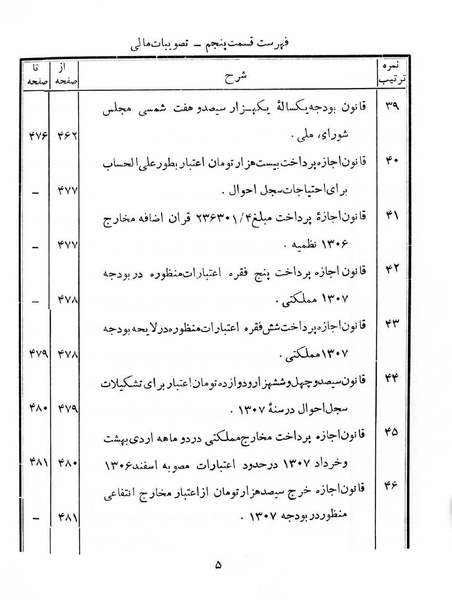 فهرست قسمت پنجم ــ تصویبات مالی
نمره ترتیب شرح از صفحه تا صفحه
۳۹ قانون بودجه یکسالهٔ یکهزار سیصد و هفت شمسی مجلس
شورای ملی . ۴۶۲ ۴۷۶
۴۰ قانون اجازه پرداخت بیست هزار تومان اعتبار بطور علی الحساب
برای احتیاجات سجل احوال . ۴۷۷ ــ
۴۱ قانون اجازهٔ پرداخت مبلغ ۲۳۶۳۰۱/۴ قران اضافه مخارج
۱۳۰۶ نظمیه . ۴۷۷ ــ
۴۲ قانون اجازه پرداخت پنج فقره اعتبارات منظوره در بودجه
۱۳۰۷ مملکتی . ۴۷۸ ــ
۴۳ قانون اجازه پرداخت شش فقره اعتبارات منظوره در لایحه بودجه
۱۳۰۷ مملکتی . ۴۷۸ ۴۷۹
۴۴ قانون سیصد و چهل و ششهزار و دوازده تومان اعتبار برای تشکیلات
سجل احوال در سنهٔ ۱۳۰۷ . ۴۷۹ ۴۸۰
۴۵ قانون اجازه پرداخت مخارج مملکتی در دو ماهه اردی بهشت
و خرداد ۱۳۰۷ در حدود اعتبارات مصوبه اسفند ۱۳۰۶ ۴۸۰ ۴۸۱
۴۶ قانون اجازه خرج سیصد هزار تومان از اعتبار مخارج انتفاعی
منظور در بودجه ۱۳۰۷ . ۴۸۱ ــ
۵